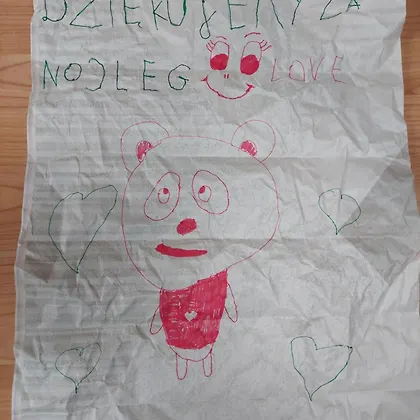 DZIĘKUJEMY ZA
NOCLEG LOVE